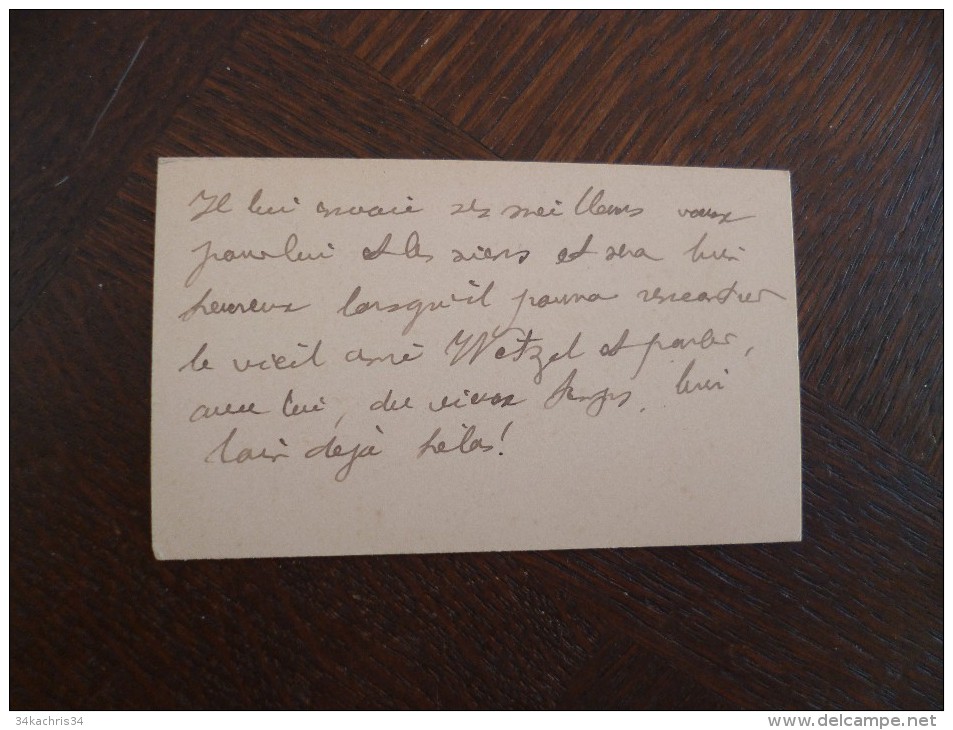 Il lui envoie ses meilleurs vœux
pour lui et les siens et sera bien
heureux lorsqu'il pourra rencontrer
le vieil ami Wetzel et parler,
avec lui, du vieux temps, bien
loin déjà hélas!
34kachris34
www.delcampe.net